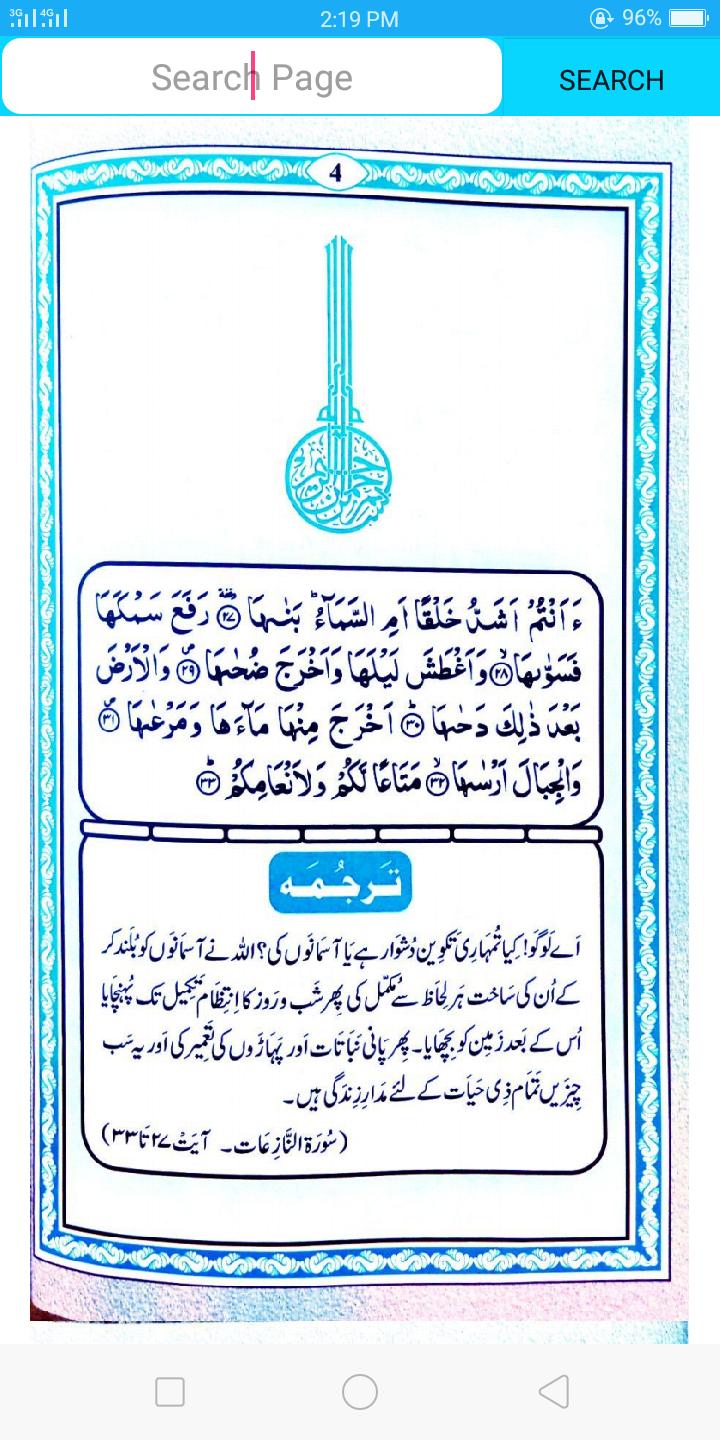 3G 4G 2:19 PM 96%
Search Page SEARCH
4
ءَاَنْتُمْ اَشَدُّ خَلْقًا اَمِ السَّمَآءُ ؕ بَنٰىهَا ﴿۲۷﴾ رَفَعَ سَمْكَهَا
فَسَوّٰىهَا ﴿۲۸﴾ وَاَغْطَشَ لَيْلَهَا وَاَخْرَجَ ضُحٰىهَا ﴿۲۹﴾ وَالْاَرْضَ
بَعْدَ ذٰلِكَ دَحٰىهَا ﴿۳۰﴾ اَخْرَجَ مِنْهَا مَآءَهَا وَمَرْعٰىهَا ﴿۳۱﴾
وَالْجِبَالَ اَرْسٰىهَا ﴿۳۲﴾ مَتَاعًا لَّكُمْ وَلِاَنْعَامِكُمْ ﴿۳۳﴾
تَرجُمَہ
اَے لوگو! کیا تُمہاری تکوین دُشوار ہے یا آسمانوں کی؟ اللہ نے آسمانوں کو بُلند کر
کے اُن کی ساخت ہر لحاظ سے مُکمّل کی پھر شَب و روز کا اِنتِظام تکمیل تک پُہنچایا
اُس کے بَعد زَمین کو بِچھایا۔ پِھر پانی نَبَاتات اَور پَہاڑوں کی تَعمیر کی اَور یہ سَب
چِیزیں تَمَام ذِی حَیَات کے لئے مَدارِ زِندَگی ہیں۔
(سُورَۃ النَّازِعَات۔ آیَتْ ۲۷ تَا ۳۳)